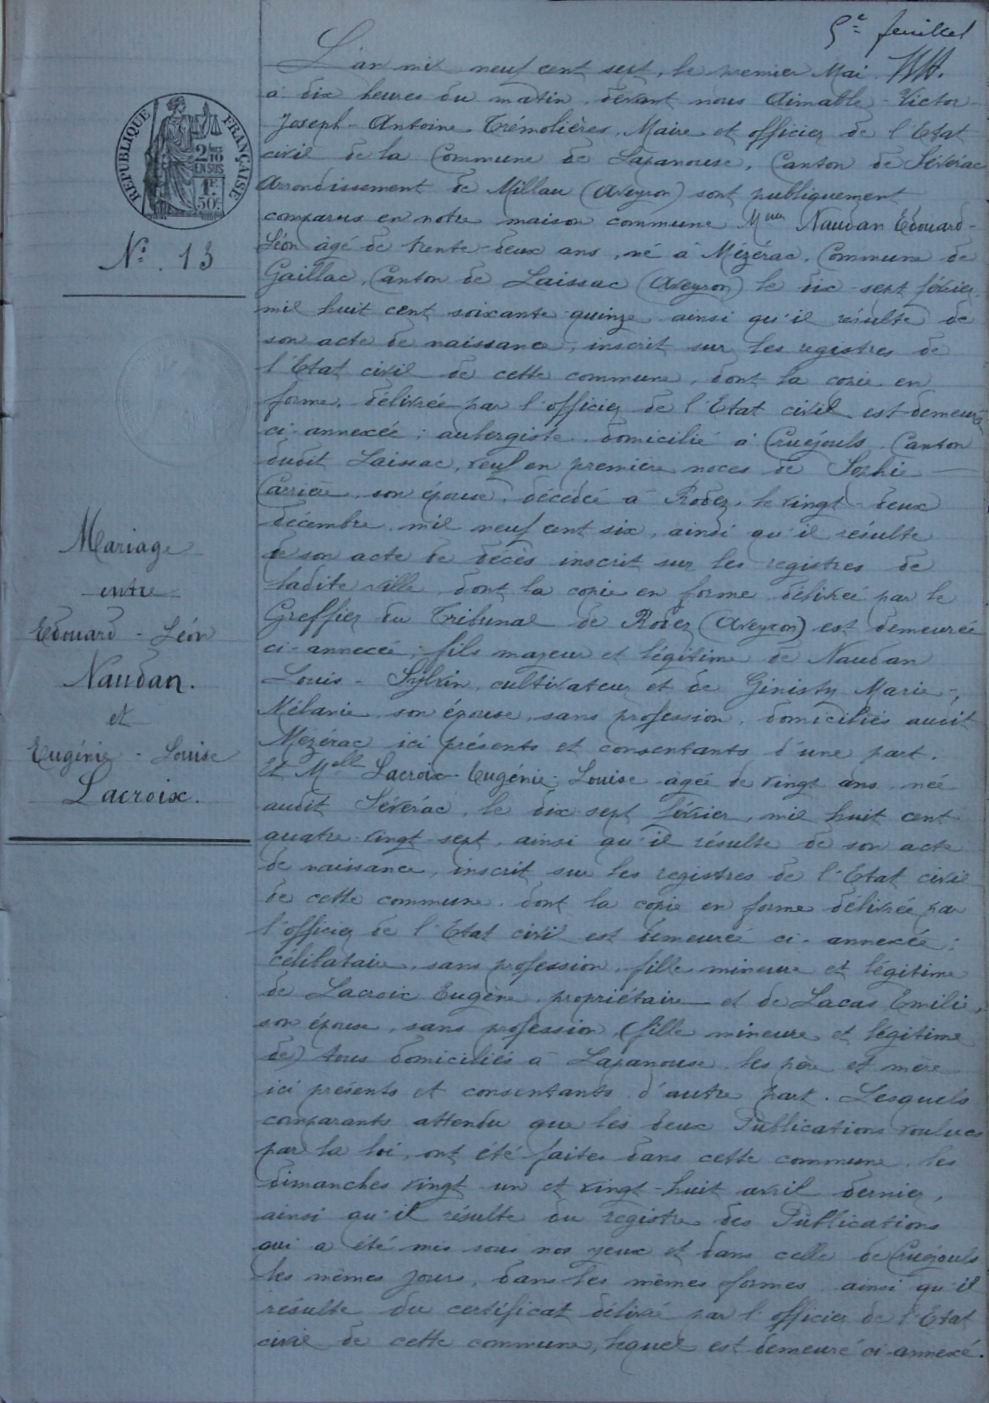 5e feuillet
L'an mil neuf cent sept, le premier Mai
à dix heures du matin, devant nous Aimable - Victor -
Joseph - Antoine Trémolières, Maire et officier de l'Etat
civil de la Commune de Lapanouse, Canton de Sévérac
Arrondissement de Millau (Aveyron) sont publiquement
comparus en notre maison commune Naudan Edouard -
Léon âgé de trente-deux ans, né à Mézérac, Commune de
Gaillac, Canton de Laissac (Aveyron) le dix-sept février
mil huit cent soixante quinze ainsi qu'il résulte de
son acte de naissance, inscrit sur les registres de
l'Etat civil de cette commune, dont la copie en
forme, délivrée par l'officier de l'Etat civil est demeurée
ci-annexée ; aubergiste domicilié à Cruéjouls, Canton
dudit Laissac, veuf en première noces de Sophie
Carrière, son épouse, décédée à Rodez, le vingt-deux
décembre mil neuf cent six, ainsi qu'il résulte
de son acte de décès inscrit sur les registres de
ladite ville, dont la copie en forme délivrée par le
Greffier du Tribunal de Rodez (Aveyron) est demeurée
ci-annexée ; fils majeur et légitime de Naudan
Louis - Sylvin, cultivateur et de Ginisty Marie -
Mélanie, son épouse, sans profession, domiciliés audit
Mézérac ici présents et consentants d'une part.
Et Melle Lacroix - Eugénie - Louise âgée de vingt ans, née
audit Sévérac, le dix sept février, mil huit cent
quatre-vingt-sept, ainsi qu'il résulte de son acte
de naissance, inscrit sur les registres de l'Etat civil
de cette commune, dont la copie en forme délivrée par
l'officier de l'Etat civil est demeurée ci-annexée ;
célibataire, sans profession, fille mineure et légitime
de Lacroix Eugène, propriétaire et de Lacas Emilie,
son épouse, sans profession (fille mineure et légitime
de) tous domiciliés à Lapanouse, les père et mère
ici présents et consentants d'autre part. Lesquels
comparants attendu que les deux Publications voulues
par la loi, ont été faites dans cette commune, les
dimanches vingt-un et vingt-huit avril dernier,
ainsi qu'il résulte du registre des Publications
qui a été mis sous nos yeux et dans celle de Cruéjouls
les mêmes jours, dans les mêmes formes ainsi qu'il
résulte du certificat délivré par l'officier de l'Etat
civil de cette commune, lequel est demeuré ci-annexé.
REPUBLIQUE FRANÇAISE
2/10 EN SUS
1F 50c
No. 13
Mariage
entre
Edouard - Léon
Naudan.
et
Eugénie - Louise
Lacroix.